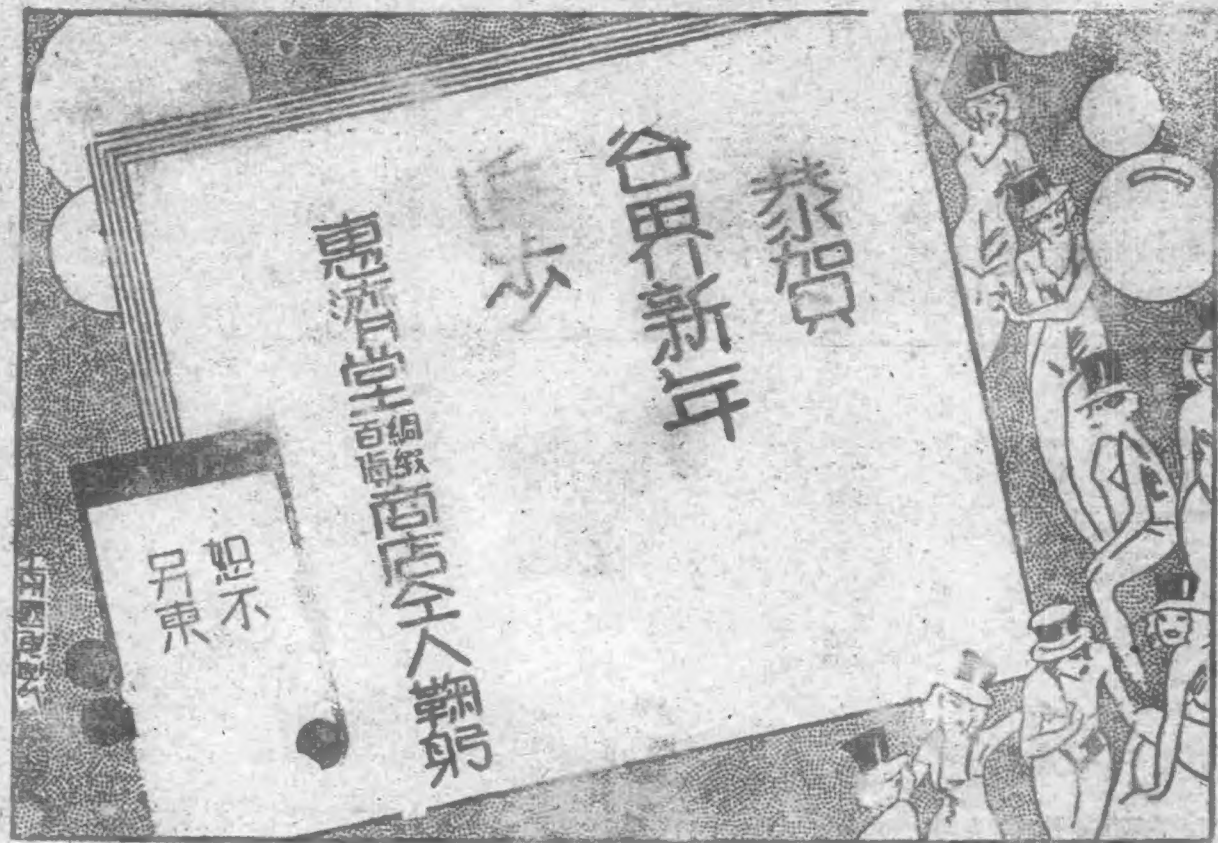 恭賀
各界新年
進步
惠濟堂綢緞百貨商店仝人鞠躬
恕不
另柬